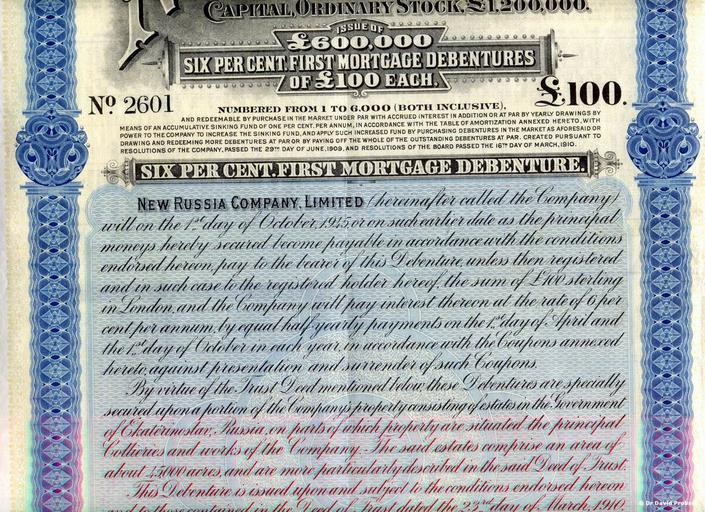 CAPITAL, ORDINARY STOCK, £1,200,000.
ISSUE OF
£600,000
SIX PER CENT. FIRST MORTGAGE DEBENTURES
OF £100 EACH.
No 2601
£100.
NUMBERED FROM 1 TO 6.000 (BOTH INCLUSIVE),
AND REDEEMABLE BY PURCHASE IN THE MARKET UNDER PAR WITH ACCRUED INTEREST IN ADDITION OR AT PAR BY YEARLY DRAWINGS BY
MEANS OF AN ACCUMULATIVE SINKING FUND OF ONE PER CENT. PER ANNUM, IN ACCORDANCE WITH THE TABLE OF AMORTIZATION ANNEXED HERETO, WITH
POWER TO THE COMPANY TO INCREASE THE SINKING FUND, AND APPLY SUCH INCREASED FUND BY PURCHASING DEBENTURES IN THE MARKET AS AFORESAID OR
DRAWING AND REDEEMING MORE DEBENTURES AT PAR OR BY PAYING OFF THE WHOLE OF THE OUTSTANDING DEBENTURES AT PAR. CREATED PURSUANT TO
RESOLUTIONS OF THE COMPANY, PASSED THE 29TH DAY OF JUNE, 1909, AND RESOLUTIONS OF THE BOARD PASSED THE 16TH DAY OF MARCH, 1910.
SIX PER CENT. FIRST MORTGAGE DEBENTURE.
NEW RUSSIA COMPANY, LIMITED (hereinafter called the Company)
will on the 1st day of October, 1945, or on such earlier date as the principal
moneys hereby secured become payable in accordance with the conditions
endorsed hereon, pay to the bearer of this Debenture, unless then registered
and in such case to the registered holder hereof, the sum of £100 sterling
in London, and the Company will pay interest thereon at the rate of 6 per
cent per annum, by equal half yearly payments on the 1st day of April and
the 1st day of October in each year, in accordance with the Coupons annexed
hereto, against presentation and surrender of such Coupons.
By virtue of the Trust Deed mentioned below these Debentures are specially
secured upon a portion of the Company's property consisting of estates in the Government
of Ekaterinoslav, Russia, on parts of which property are situated the principal
Collieries and works of the Company. The said estates comprise an area of
about 45,000 acres, and are more particularly described in the said Deed of Trust.
This Debenture is issued upon and subject to the conditions endorsed hereon
and to those contained in the Deed of Trust dated the 23rd day of March, 1910